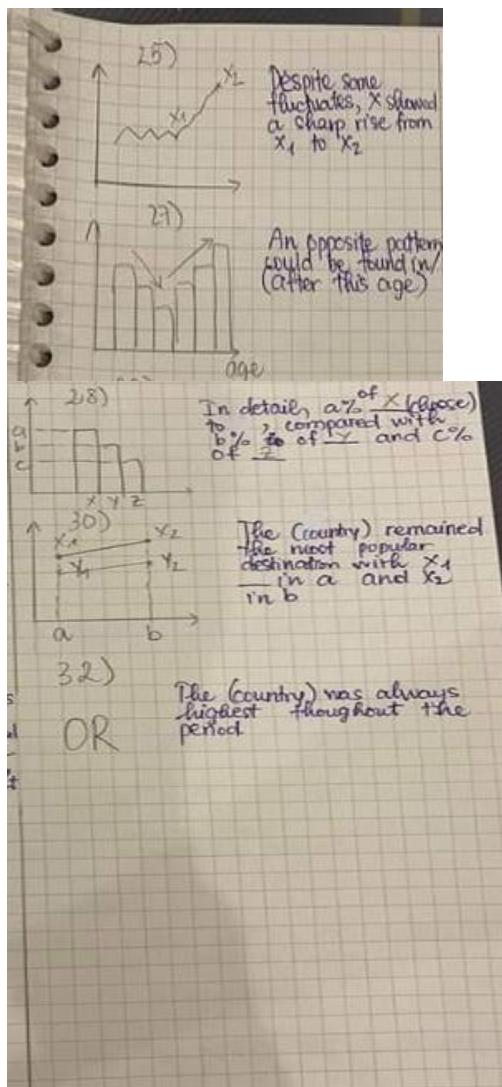 25)
X2
X1
Despite some
fluctuates, X showed
a sharp rise from
x1 to x2
27)
age
An opposite pattern
could be found in/
(after this age)
28)
a
b
c
X Y Z
In detail, a% of X (choose)
to , compared with
b% to of Y and c%
of Z
30)
X1
X2
Y1
Y2
a
b
The (country) remained
the most popular
destination with X1
in a and X2
in b
32)
OR
The (country) was always
highest thoughout the
period